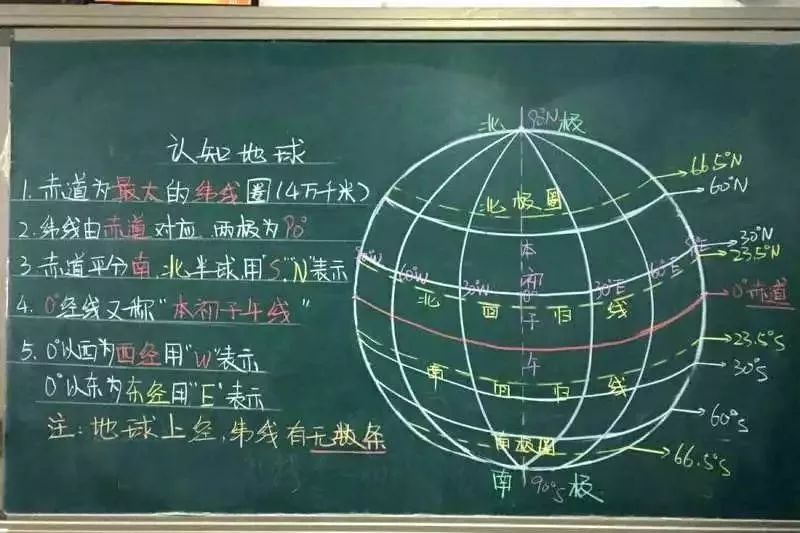 认知地球
1. 赤道为最大的纬线圈(4万千米)
2. 纬线由赤道对应 两极为90°
3. 赤道平分南.北半球用"S""N"表示
4. 0°经线又称"本初子午线"
5. 0°以西为西经用"W"表示
0°以东为东经用"E"表示
注:地球上经.纬线有无数条
北 90°N 极
66.5°N
60°N
北极圈
30°N
23.5°N
60°W
30°W
0°
30°E
60°E
本初子午
北回归线
0°赤道
23.5°S
30°S
南回归线
60°S
南极圈
66.5°S
南 90°S 极